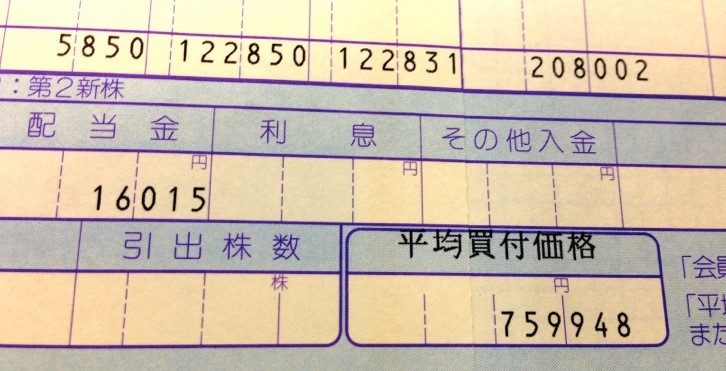 5850 122850 122831 208002
：第２新株
配当金 利息 その他入金
円 円 円
16015
引出株数 平均買付価格
株 円
759948
「会員
「平均
また